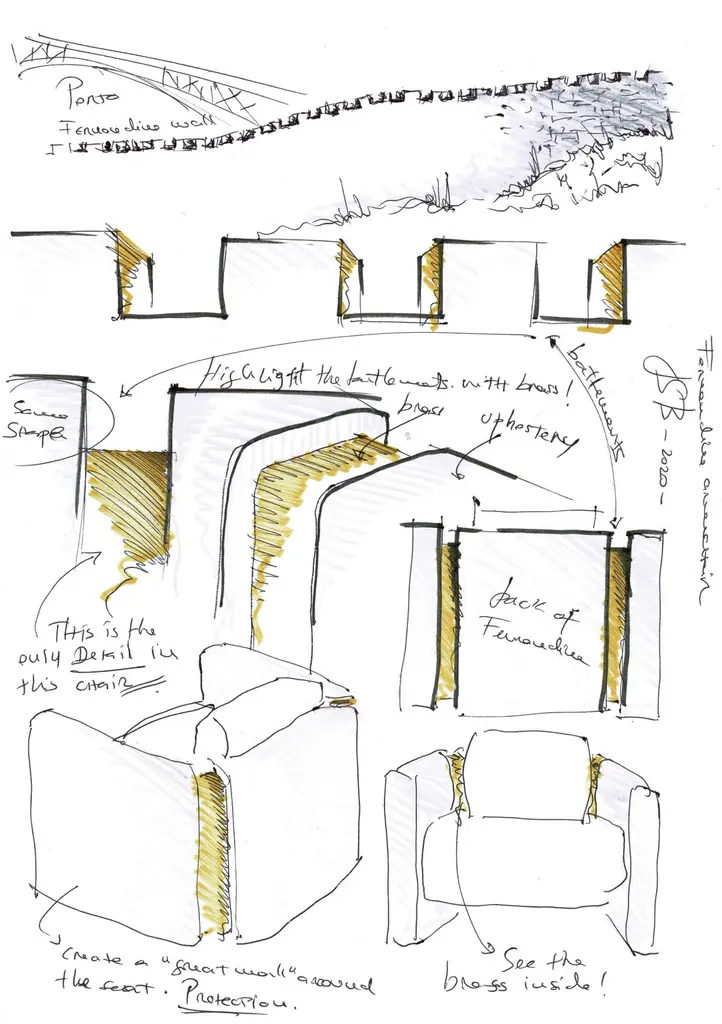 Porto
Fernandine wall
HighLight the battlements with brass!
brass
upholstery
battlements
Same
Shape
This is the
only Detail in
this chair
back of
Fernandine
Fernandine armchair
- 2020 -
create a "great wall" around
the seat. Protection.
See the
brass inside!